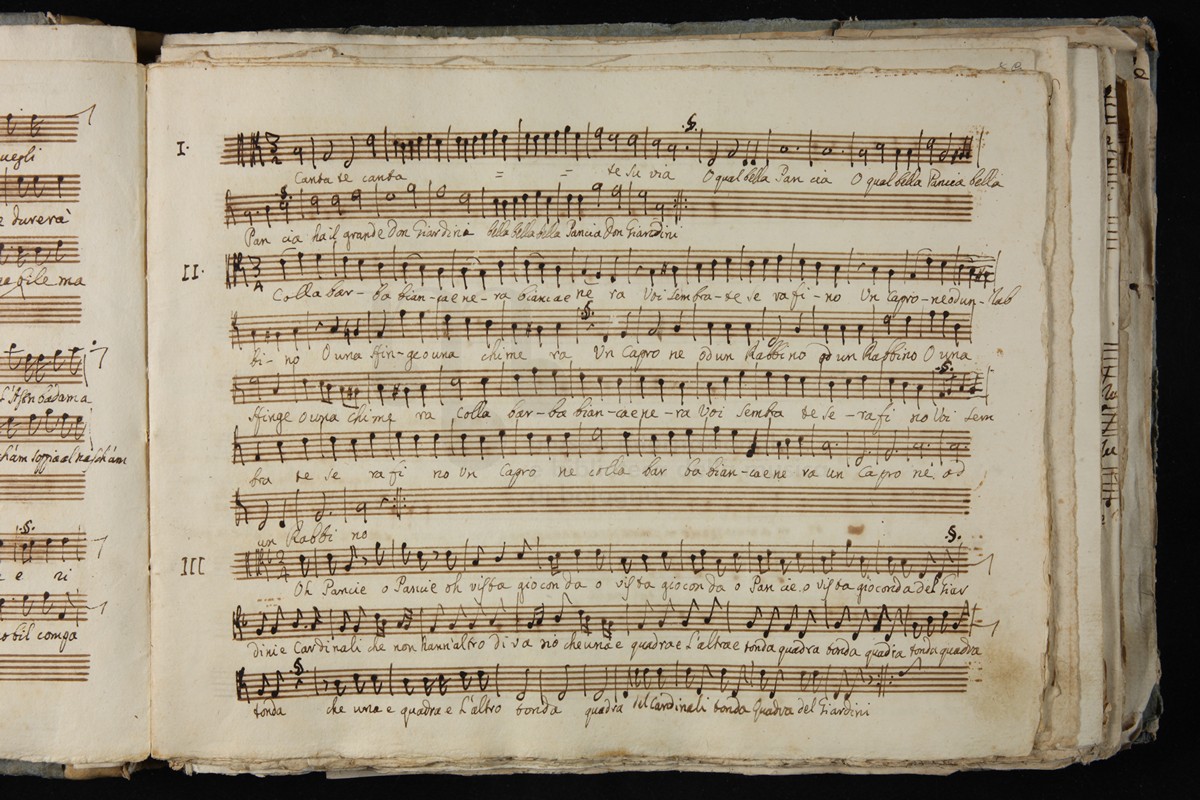 uegli
e durerà
file ma
L'Asen bà dama
e ri
nobil compa
I.
Canta te canta = = te su via O qual bella Pan cia O qual bella Pancia bella
Pan cia ha il grande Don Giardina bella bella bella Pancia Don Giardini
II.
Colla bar- ba bian- ca e ne- ra bianca e ne ra Voi sembra- te se rafi- no Un Capro- ne od un- Rab
bi- no O una sfin- ge o una chime ra Un Capro ne od un Rabbino od un Rabbino O una
sfinge o una chime ra Colla bar- ba bian- ca e ne- ra Voi sembra te se- rafi no Voi sem
bra te se rafi no Un Capro ne colla bar ba bian- ca e ne ra un Capro ne od
un Rabbi no
III
Oh Pancie o Pancie oh vista giocon da o vista giocon da o Pan cie o vista gioconda del Giar
dini e Cardinali che non hann'altro di va no che una e quadra e L'altra e tonda quadra tonda quadra tonda quadra
tonda che una e quadra e L'altro tonda quadra del Cardinali tonda Quadra del Giardini